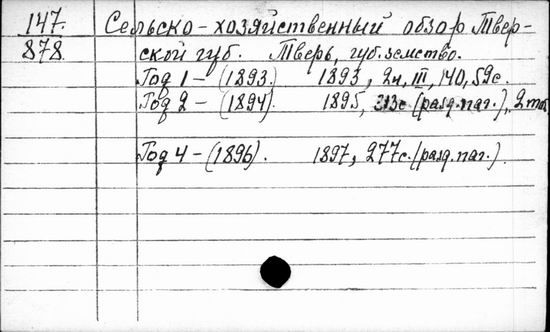 147. Сельско-хозяйственный обзор Твер-
878. ской губ. Тверь, губ. земство.
Год 1 - (1893.) 1893, 2ч, III, 140, 59с.
Год 2 - (1894). 1895, 313с. (разд. паг.), 2 таб.
Год 4 - (1896). 1897, 277с. (разд. паг.).